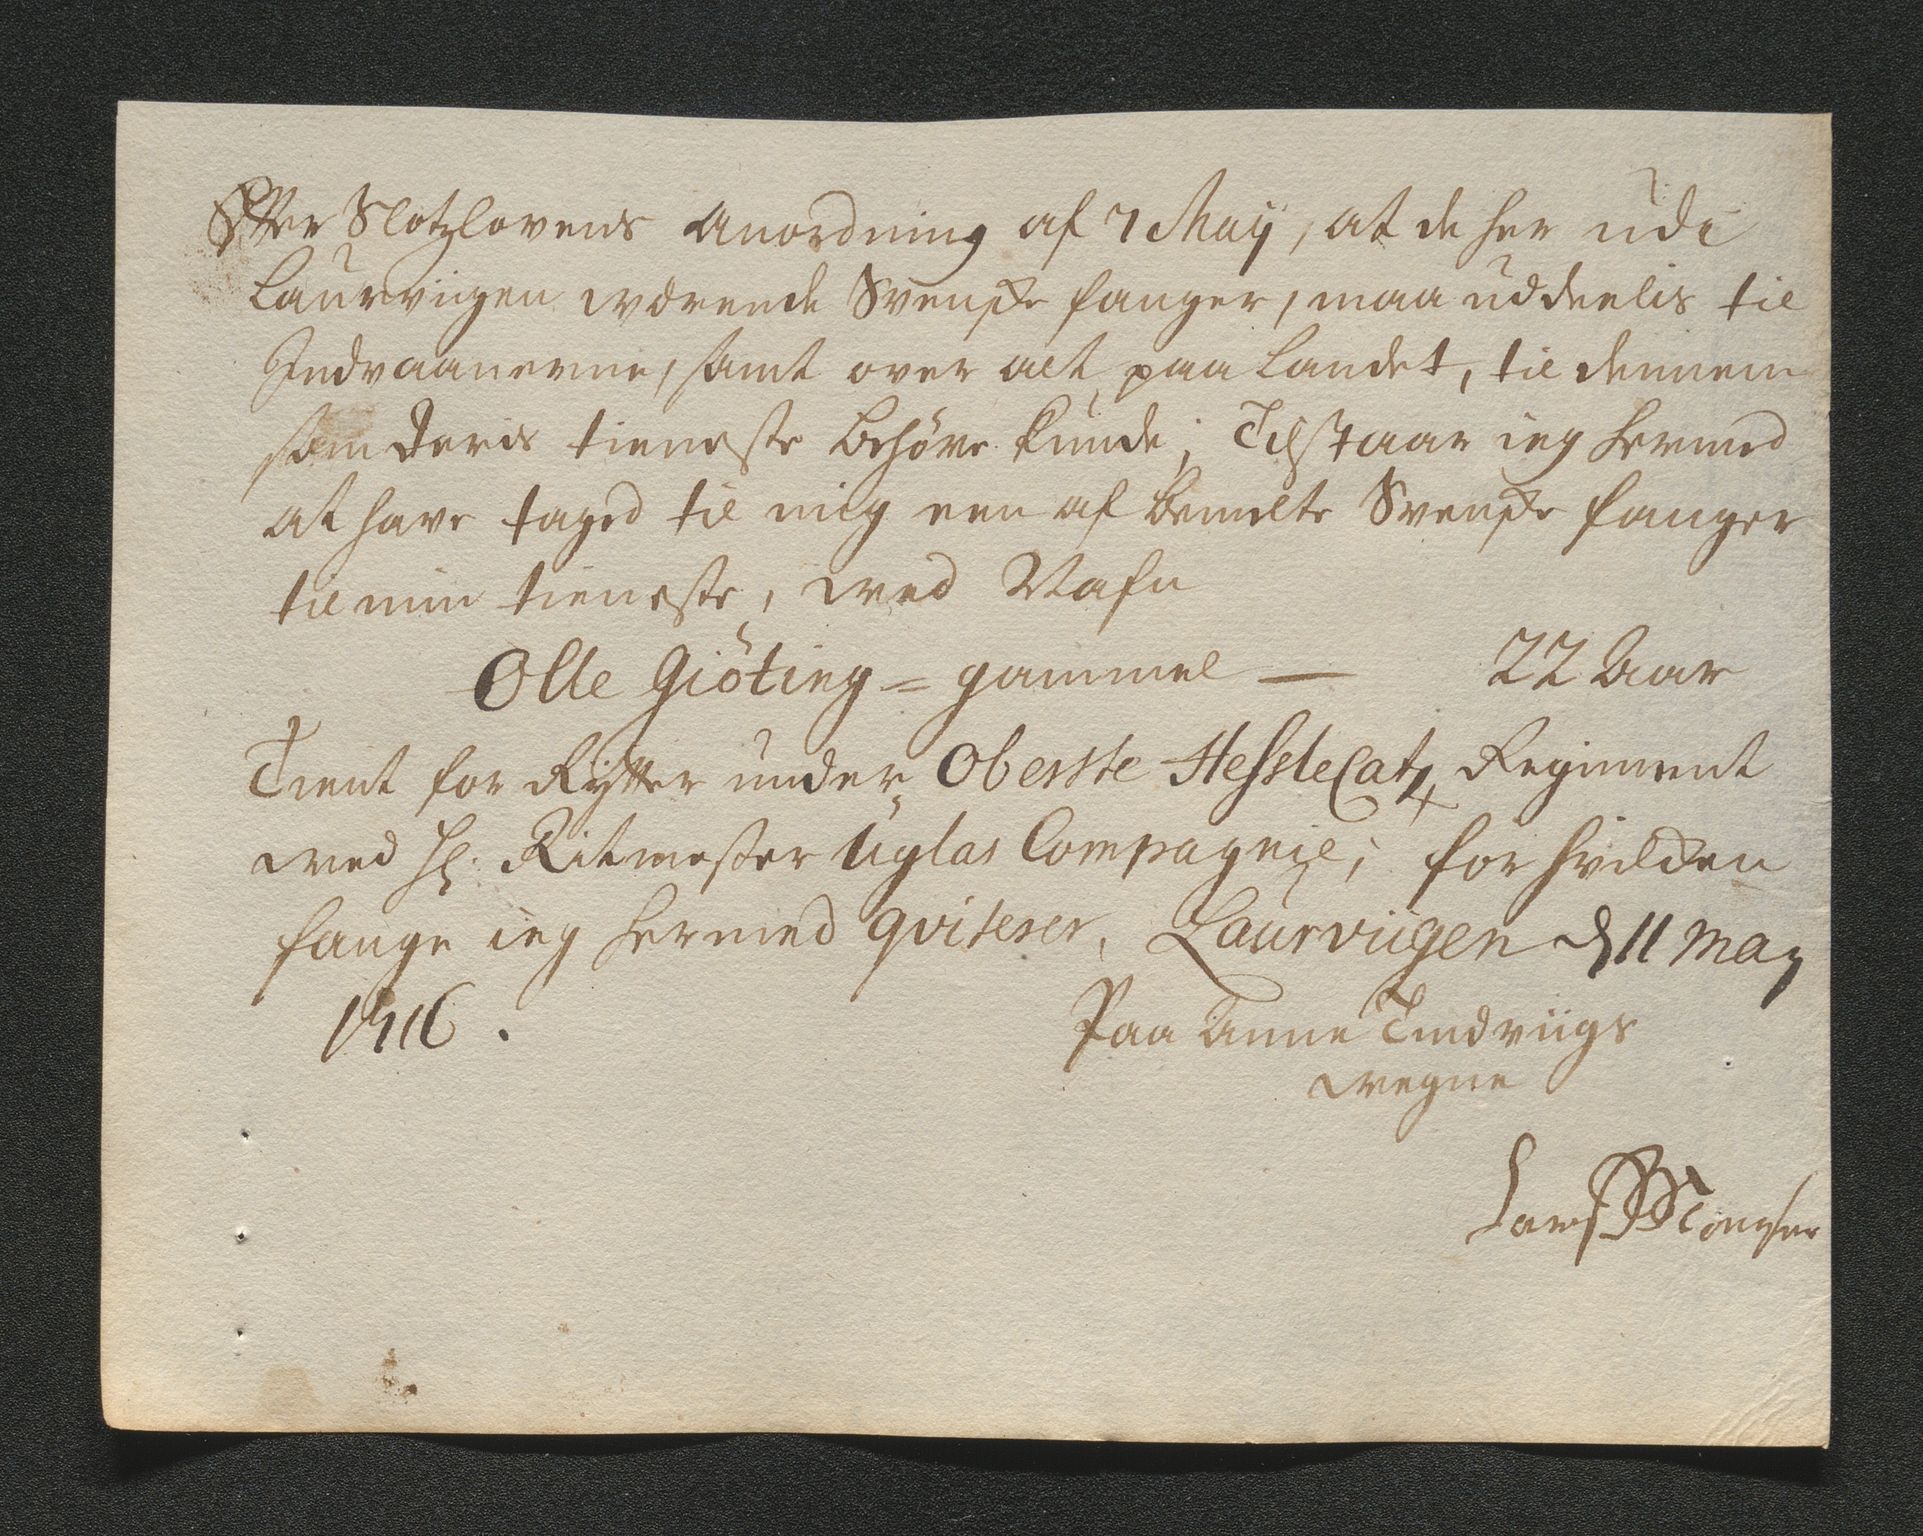 Efter Slotzlovens Anordning af 7 Maij, at de her udi
Laurviigen wærende Svenske fanger, maa uddeelis til
Indvaanerne, samt over alt paa Landet, til dennem
som deris tieneste behøve kunde; Tilstaar ieg hermed
at have taged til mig een af bemelte Svenske fanger
til min tieneste, wed Nafn
Olle Giöting = gammel — 22 Aar
Tient for Rytter under Oberste Hesslecatz Regiment
wed Hr. Ritmester Uglas Compagnie; for hvilcken
fange ieg hermed qviterer, Laurviigen d 11 May
1716.
Paa Anne Tindviigs
wegne
Lars